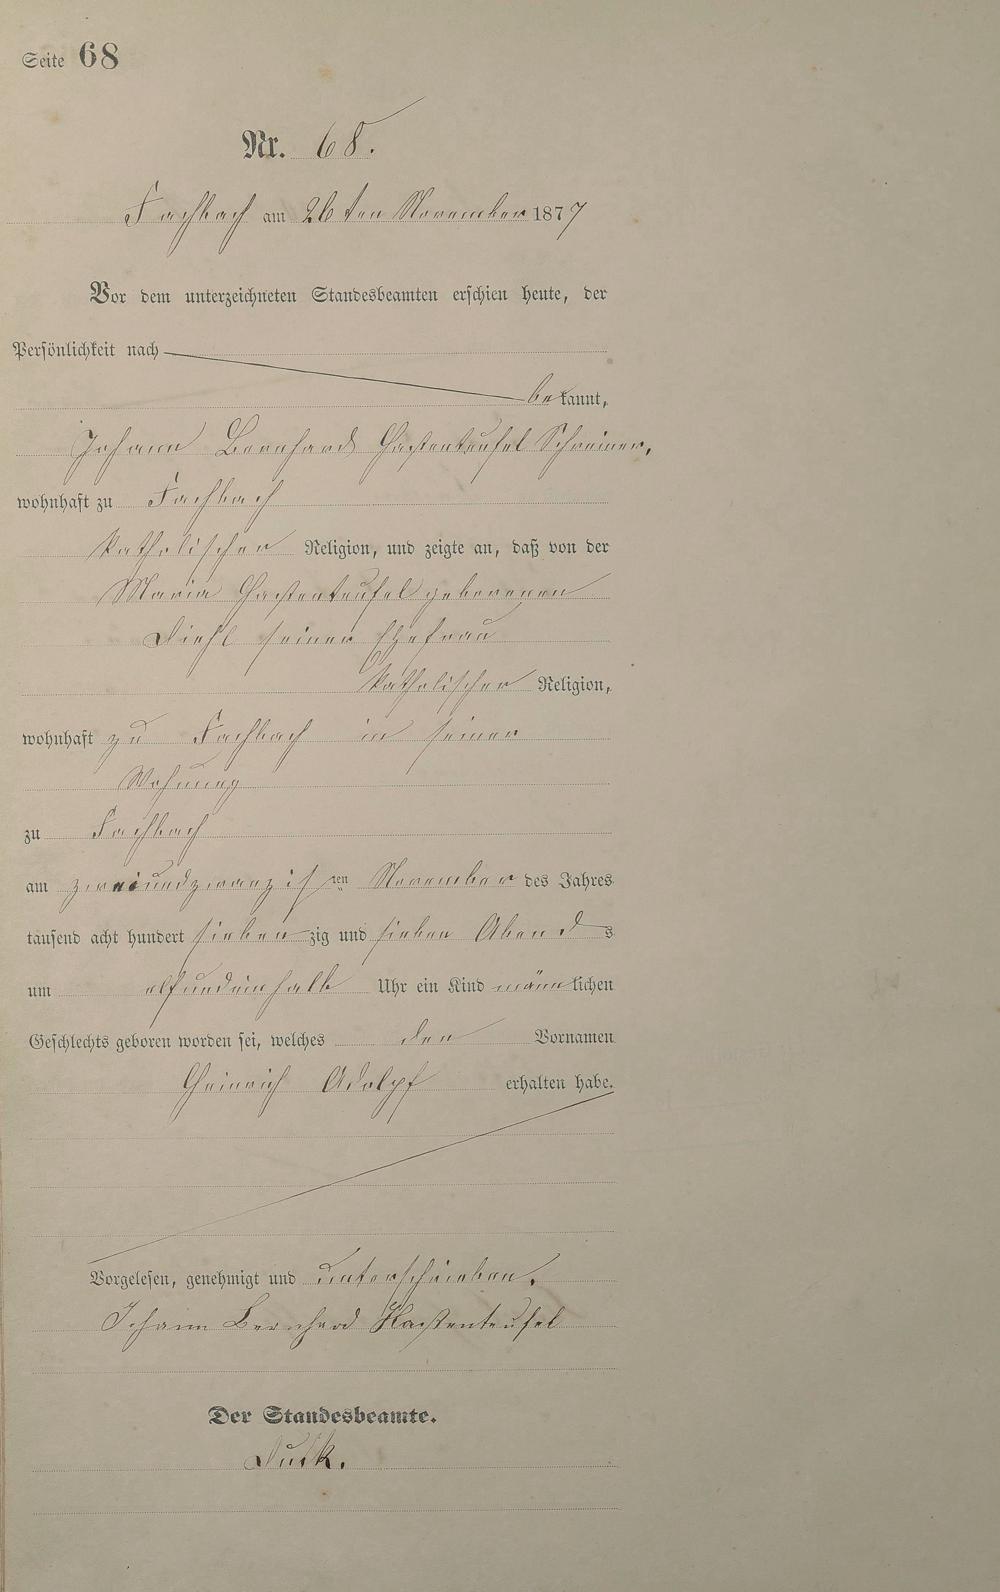 Seite 68
Nr. 68.
Fachbach am 26ten November 1877
Vor dem unterzeichneten Standesbeamten erschien heute, der
Persönlichkeit nach
bekannt,
Johann Bernhard Hastenteufel Schreiner,
wohnhaft zu Fachbach
katholischer Religion, und zeigte an, daß von der
Maria Hastenteufel geborenen
Diehl seiner Ehefrau
katholischer Religion,
wohnhaft zu Fachbach in seiner
Wohnung
zu Fachbach
am zweiundzwanzigsten November des Jahres
tausend acht hundert siebenzig und sieben Abends
um elfundeinhalb Uhr ein Kind männlichen
Geschlechts geboren worden sei, welches den Vornamen
Heinrich Adolpf erhalten habe.
Vorgelesen, genehmigt und unterschrieben.
Johann Bernhard Hastenteufel
Der Standesbeamte.